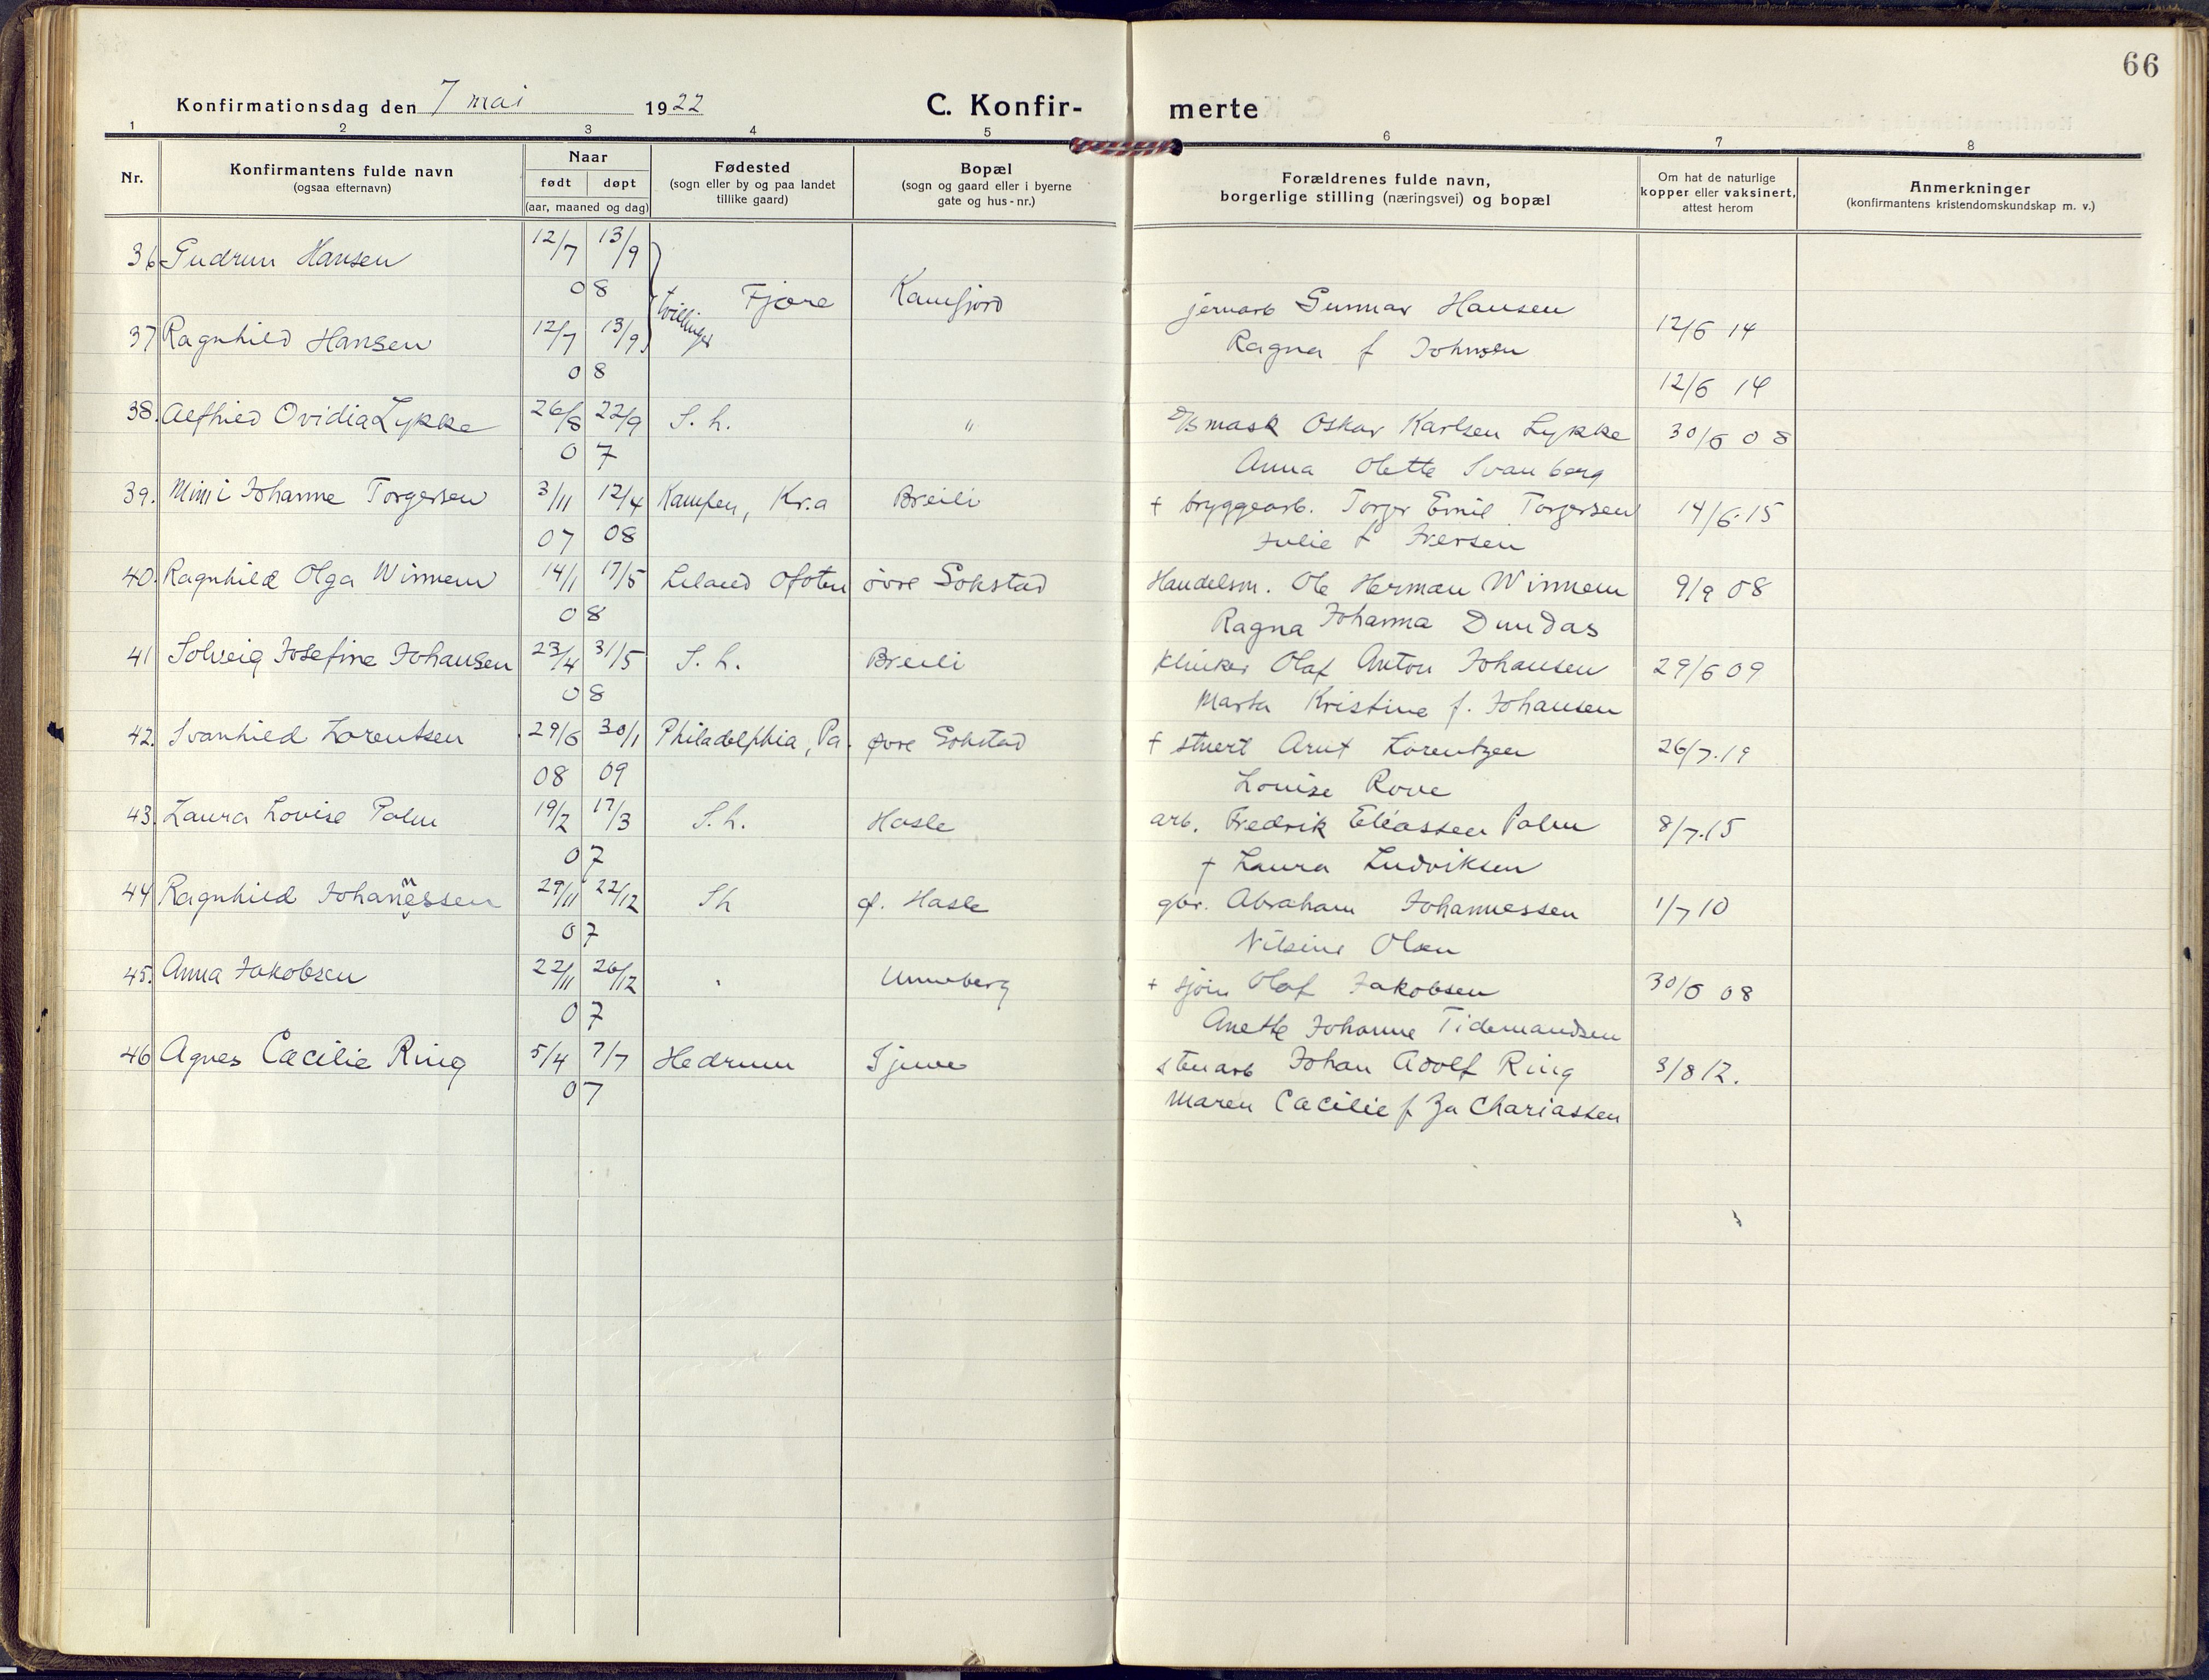 66
Konfirmationsdag den 7 mai 1922 C. Konfir- merte
1 2 3 4 5 6 7 8
Nr. Konfirmantens fulde navn (ogsaa efternavn) Naar født døpt (aar, maaned og dag) Fødested (sogn eller by og paa landet tillike gaard) Bopæl (sogn og gaard eller i byerne gate og hus-nr.) Forældrenes fulde navn, borgerlige stilling (næringsvei) og bopæl Om hat de naturlige kopper eller vaksinert, attest herom Anmerkninger (konfirmantens kristendomskundskap m. v.)
36 Gudrun Hansen 12/7 13/9
08 tvillinger Fjære Kamfjord jernarb Gunnar Hansen
37 Ragnhild Hansen 12/7 13/9 Ragna f Johnsen 12/6 14
08 12/6 14
38. Alfhild Ovidia Lykke 26/8 22/9 S. h. " D/S mask Oskar Karlsen Lykke 30/6 08
07 Anna Olette Svanberg
39. Mimi Johanne Torgersen 3/11 12/4 Kampen, Kr.a Breili + bryggearb. Torger Emil Torgersen 14/6.15
07 08 Julie f Iversen
40. Ragnhild Olga Winnem 14/1 17/5 Leland Ofoten øvre Gokstad Handelsm. Ole Herman Winnem 9/9 08
08 Ragna Johanna Dundas
41 Solveig Josefine Johansen 23/4 31/5 S. h. Breili Klinker Olaf Anton Johansen 29/6 09
08 Marta Kristine f. Johansen
42. Svanhild Lorentsen 29/6 30/1 Philadelphia, Pa. øvre Gokstad + stuert Arnt Lorentzen 26/7.19
08 09 Louise Rove
43. Laura Lovise Palm 19/2 17/3 S. h. Hasle arb. Fredrik Eliassen Palm 8/7.15
07 + Laura Ludviksen
44 Ragnhild Johannessen 29/11 22/12 Sh ø. Hasle gbr. Abraham Johannessen 1/7 10
07 Nilsine Olsen
45. Anna Jakobsen 22/11 26/12 " Unneberg + sjøm Olaf Jakobsen 30/6 08
07 Anette Johanne Tidemandsen
46 Agnes Cæcilie Ring 5/4 7/7 Hedrum stenarb Johan Adolf Ring 3/8 12.
07 Maren Cæcilie f Zachariassen